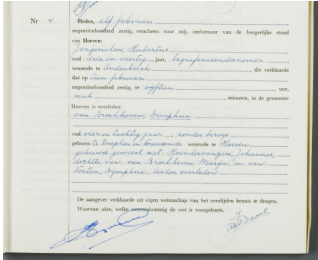 Nr 4 Heden, elf februari
negentienhonderd zestig, verscheen voor mij, ambtenaar van de burgerlijke stand
van Hoeven:
Jongenelen Hubertus
oud drie en veertig jaar, begrafenisondernemer
wonende te Oudenbosch, die verklaarde
dat op tien februari
negentienhonderd zestig, te vijftien uur,
nul minuten, in de gemeente
Hoeven is overleden:
van Broekhoven, Dingena
oud vier en tachtig jaar zonder beroep
geboren te wonende te Hoeven
gehuwd geweest met Johannes,
dochter van van Broekhoven, Marijn, en van
beiden overleden
De aangever verklaarde uit eigen wetenschap van het overlijden kennis te dragen.
Waarvan akte, welke overeenkomstig de wet is voorgelezen.